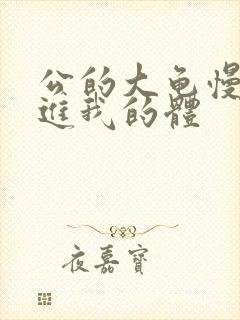 公的大龟慢
进我的體
夜嘉寶